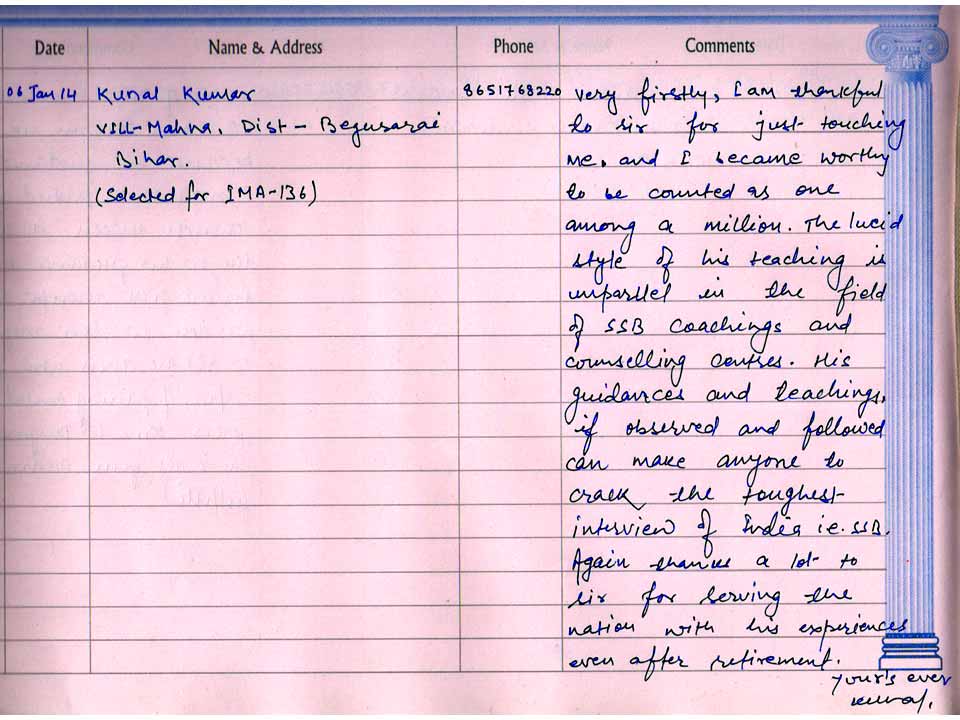 Date Name & Address Phone Comments
06 Jan 14 Kunal Kumar 8651768220 very firstly, I am thankful
VILL-Mahna, Dist - Begusarai to sir for just touching
Bihar. me, and I became worthy
(Selected for IMA-136) to be counted as one
among a million. The lucid
style of his teaching is
unparllel in the field
of SSB coachings and
counselling centres. His
guidances and teachings,
if observed and followed
can make anyone to
crack the toughest
interview of India i.e. SSB.
Again thanks a lot to
sir for serving the
nation with his experiences
even after retirement.
your's ever
Kunal.